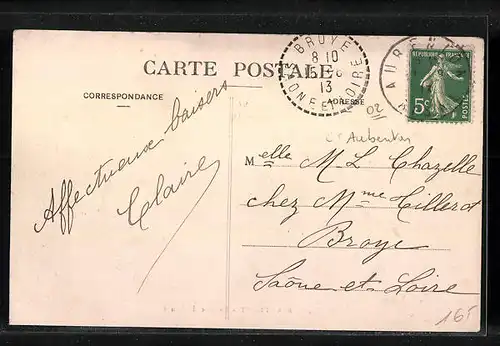 CARTE POSTALE
CORRESPONDANCE
ADRESSE
BROYE
8 10
13
SAONE ET LOIRE
AUBEN
REPUBLIQUE FRANÇAISE
5c
POSTES
02
Aubenton
Affectueux baisers
Claire
Melle M. L. Chazelle
chez Mme Tillerot
Broye
Saône-et-Loire
165